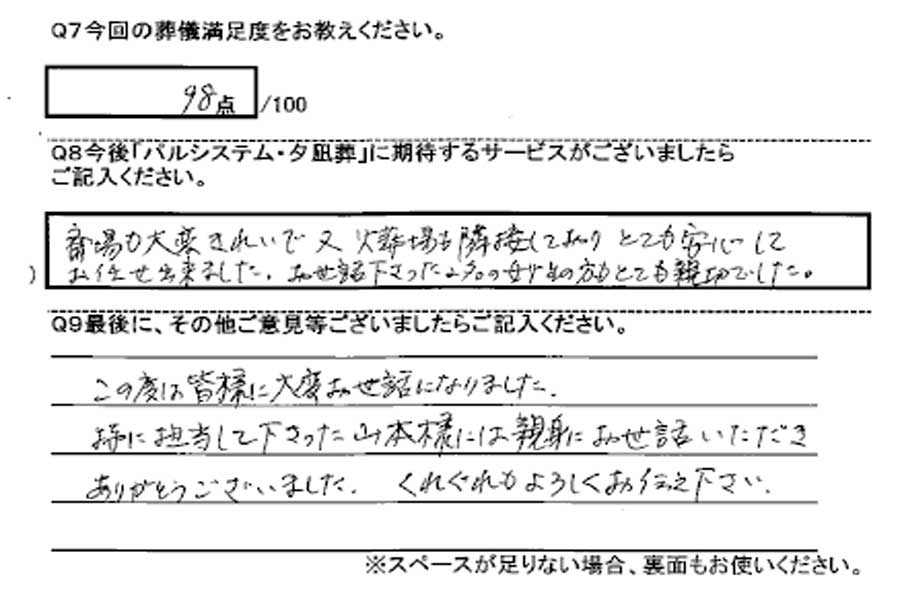 Q7今回の葬儀満足度をお教えください。
98点/100
Q8今後「パルシステム・夕凪葬」に期待するサービスがございましたら
ご記入ください。
斎場も大変きれいで又火葬場も隣接しておりとても安心して
お任せ出来ました。お世話下さった2名の女性の方もとても親切でした。
Q9最後に、その他ご意見等ございましたらご記入ください。
この度は皆様に大変お世話になりました。
特に担当して下さった山本様には親身にお世話いただき
ありがとうございました。くれぐれもよろしくお伝え下さい。
※スペースが足りない場合、裏面もお使いください。